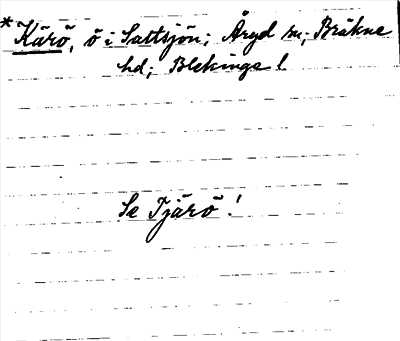 *Kärö, ö i Saltsjön; Åryd sn; Bräkne
hd; Blekinge l
Se Tjärö!